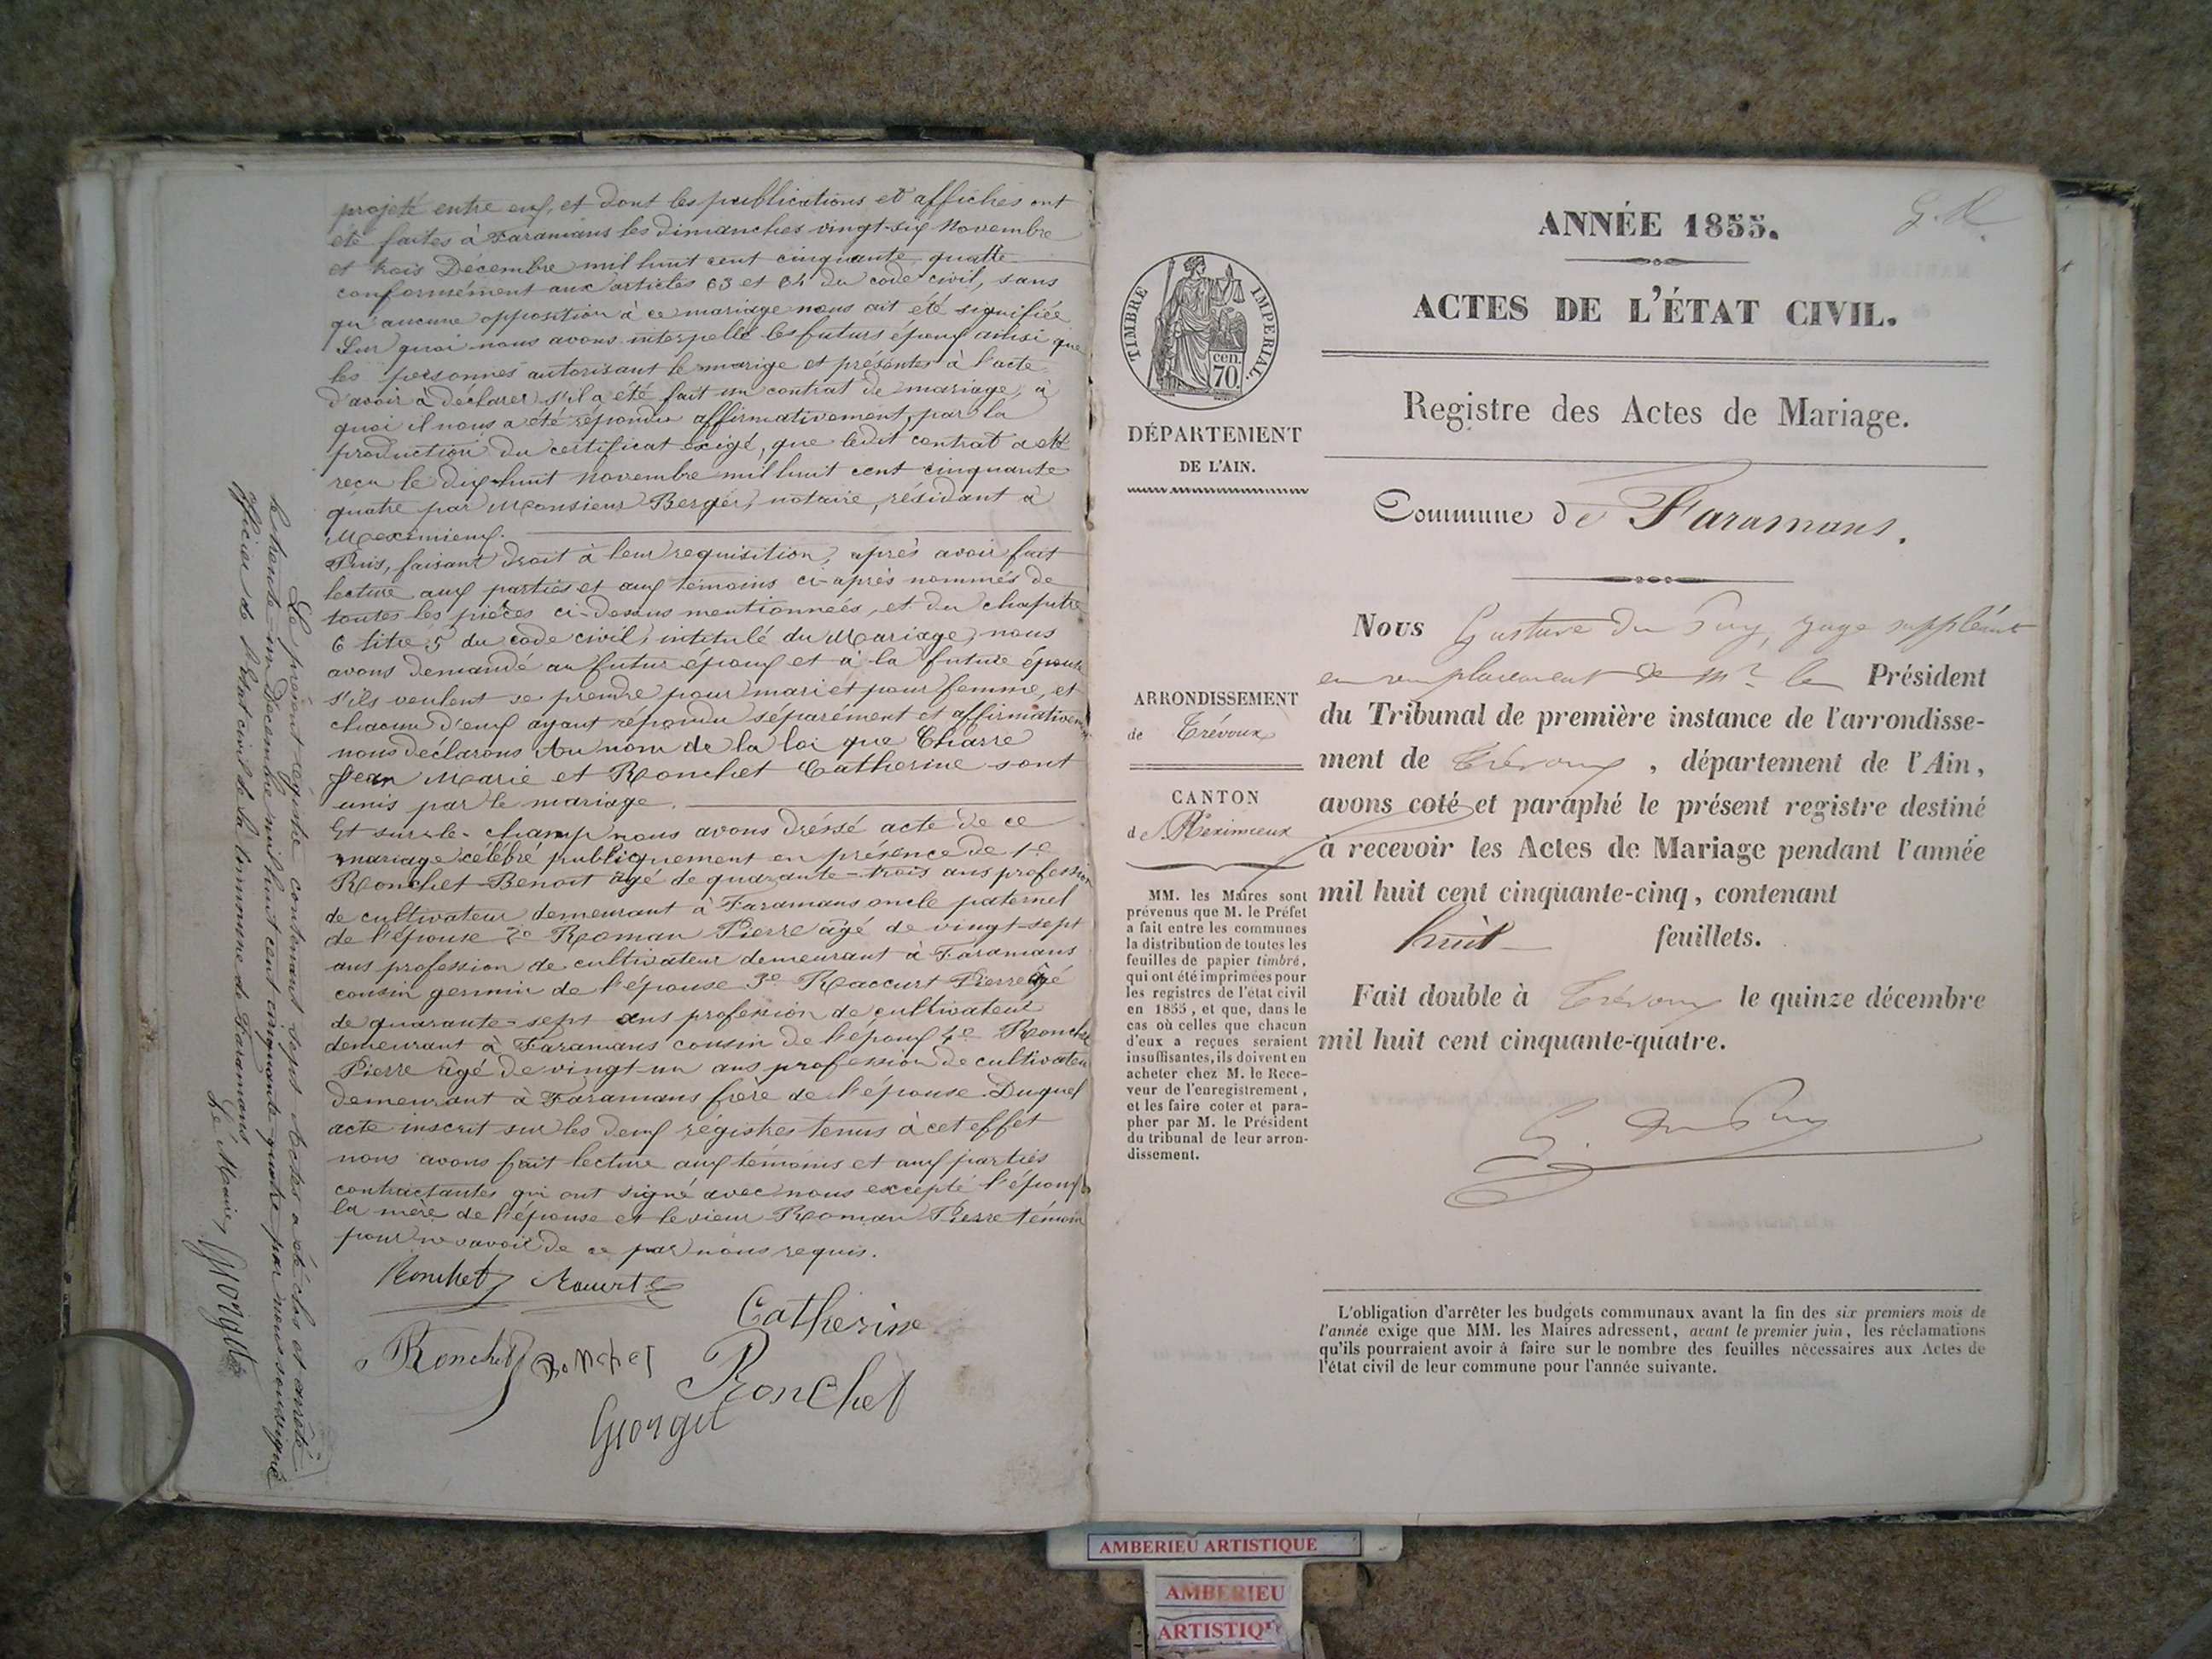 projeté entre eux, et dont les publications et affiches ont
été faites à Faramans les dimanches vingt-six Novembre
et trois Décembre mil huit cent cinquante quatre
conformément aux articles 63 et 64 du code civil, sans
qu'aucune opposition à ce mariage nous ait été signifiée
Sur quoi nous avons interpellé les futurs époux ainsi que
les personnes autorisant le marige et présentes à l'acte
d'avoir à declarer s'il a été fait un contrat de mariage, à
quoi il nous a été répondu affirmativement, par la
production du certificat exigé, que ledit contrat a été
reçu le dix-huit Novembre mil huit cent cinquante
quatre par Monsieur Berger, notaire, résidant à
Meximieux.
Puis, faisant droit à leur requisition, après avoir fait
lecture aux parties et aux témoins ci-après nommés de
toutes les pièces ci-dessus mentionneés, et du chapitre
6 titre 5 du code civil, intitulé du Mariage, nous
avons demandé au futur époux et à la future épouse
s'ils veulent se prendre pour mari et pour femme, et
chacun d'eux ayant répondu séparément et affirmativem
nous déclarons Au nom de la loi que Charre
Jean Marie et Ronchet Catherine sont
unis par le mariage.
Et sur-le-champ nous avons dréssé acte de ce
mariage célébré publiquement en présence de 1e
Ronchet Benoit âgé de quarante-trois ans profession
de cultivateur demeurant à Faramans oncle paternel
de l'épouse 2e Roman Pierre âgé de vingt-sept
ans profession de cultivateur demeurant à Faramans
cousin germin de l'épouse 3e Raccurt Pierre âgé
de quarante-sept ans profession de cultivateur
demeurant à Faramans cousin de l'époux 4e Ronchet
Pierre âgé de vingt-un ans profession de cultivateu
demeurant à Faramans frère de l'épouse. Duquel
acte inscrit sur les deux régistres tenus à cet effet
nous avons fait lecture aux témoins et aux parties
contractantes qui ont signé avec nous excepté l'époux
la mère de l'épouse et le sieur Roman Pierre témoin
pour ne savoir de ce par nous requis.
Ronchet
Catherine
Ronchet Ronchet Ronchet
Giorgit
Le présent régistre contenant sept actes a été clos et arrêté
le trente-un Décembre mil huit cent cinquante-quatre par nous soussigné
officier de l'état civil de la commune de Faramans
Le Maire,
ANNÉE 1855.
ACTES DE L'ÉTAT CIVIL.
TIMBRE IMPERIAL.
cen.
70.
Registre des Actes de Mariage.
DÉPARTEMENT
DE L'AIN.
Commune de Faramans.
Nous Gustave Du Puy, juge suppléant
en remplacement de Mr le Président
du Tribunal de première instance de l'arrondisse-
ment de Trévoux, département de l'Ain,
avons coté et paraphé le présent registre destiné
à recevoir les Actes de Mariage pendant l'année
mil huit cent cinquante-cinq, contenant
huit feuillets.
Fait double à Trévoux le quinze décembre
mil huit cent cinquante-quatre.
G. Du Puy
ARRONDISSEMENT
de Trévoux
CANTON
de Meximieux
MM. les Maires sont
prévenus que M. le Préfet
a fait entre les communes
la distribution de toutes les
feuilles de papier timbré,
qui ont été imprimées pour
les registres de l'état civil
en 1855, et que, dans le
cas où celles que chacun
d'eux a reçues seraient
insuffisantes, ils doivent en
acheter chez M. le Rece-
veur de l'enregistrement,
et les faire coter et para-
pher par M. le Président
du tribunal de leur arron-
dissement.
L'obligation d'arrêter les budgets communaux avant la fin des six premiers mois de
l'année exige que MM. les Maires adressent, avant le premier juin, les réclamations
qu'ils pourraient avoir à faire sur le nombre des feuilles nécessaires aux Actes de
l'état civil de leur commune pour l'année suivante.
AMBERIEU ARTISTIQUE
AMBERIEU
ARTISTIQU